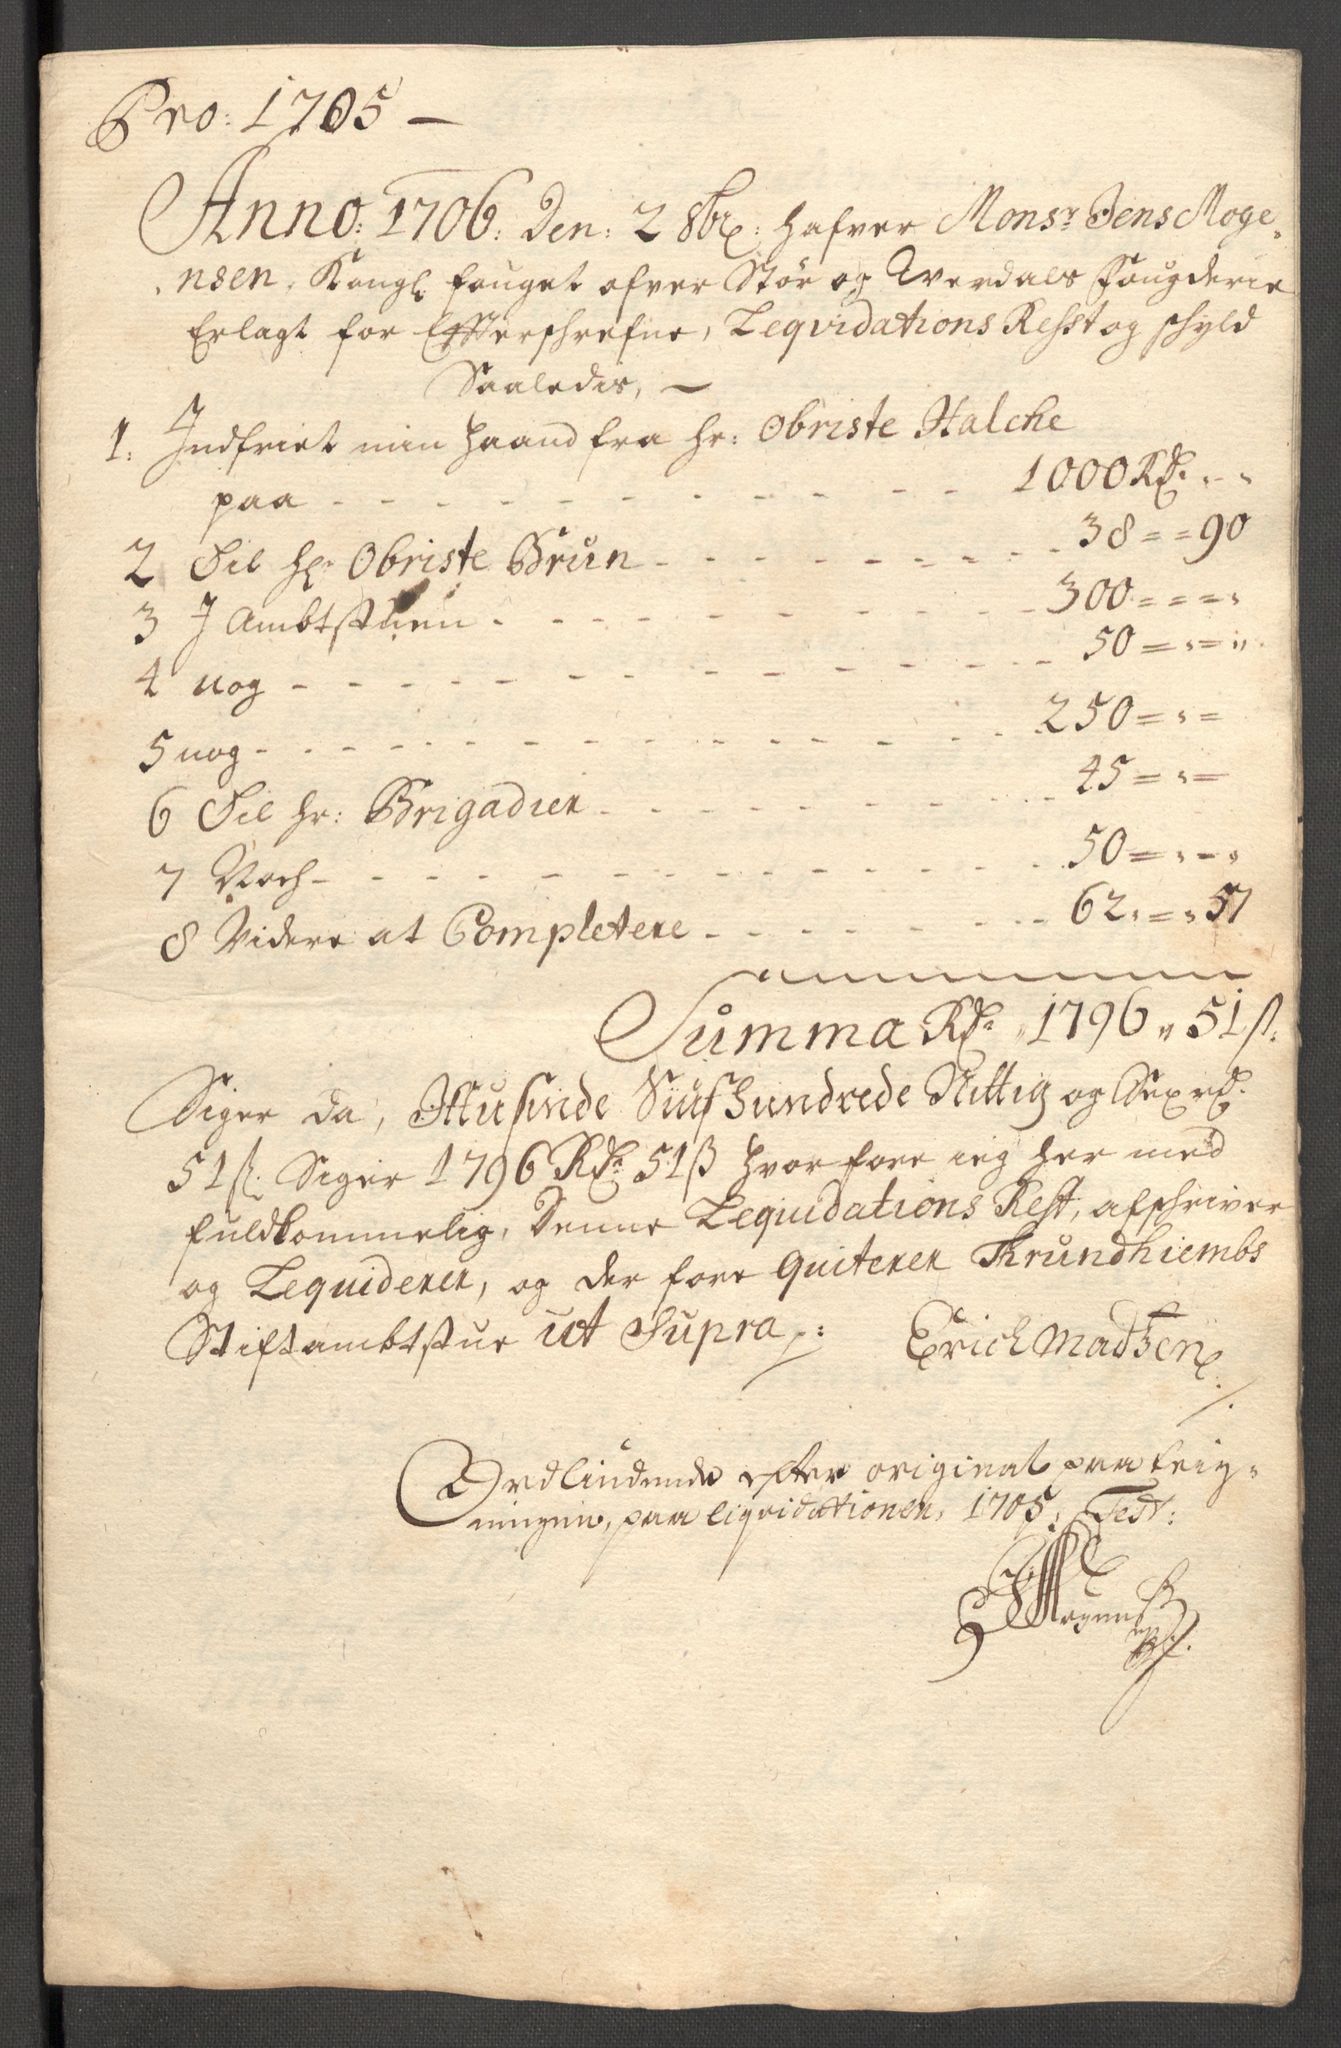 Pro: 1705 —
Anno: 1706: Den: 2 8br: hafver Monsr: Jens Moge-
nsen, Kongl fouget ofver Stør og Werdals Fougderie
Erlagt for Effterschrefne, Leqvidations Resst og schyld
Saaledis, —
1. Indfriet min Haand fra hr: Obriste Halche
paa - - - 1000 Rd: - -
2 Til Hr: Obriste Brun - - - 38 = = 90
3 J Ambtstuen - - - 300 = = = =
4 nog - - - 50 = = =
5 nog - - - 250 = = =
6 Til hr: Brigadier - - - 45 = = =
7 Noch - - - 50 = = - =
8 Videre at Completere - - - 62 = = 57
Summa Rd: 1796 " 51 ß.
Siger da, Ittusinde Siufhundrede Nittig og Sex rd:
51 ß: Siger 1796 Rd: 51 ß hvorfore ieg her med
fuldkommelig, Denne Lequidations Rest, afschriver
og Lequiderer, og der fore quiterer Thrundhiembs
Stiftambtstue ut Supra:
Erich Madtzen
Ordliudende efter original paa teig-
ningen, paa liqvidationen, 1705, Test:
JMogensen